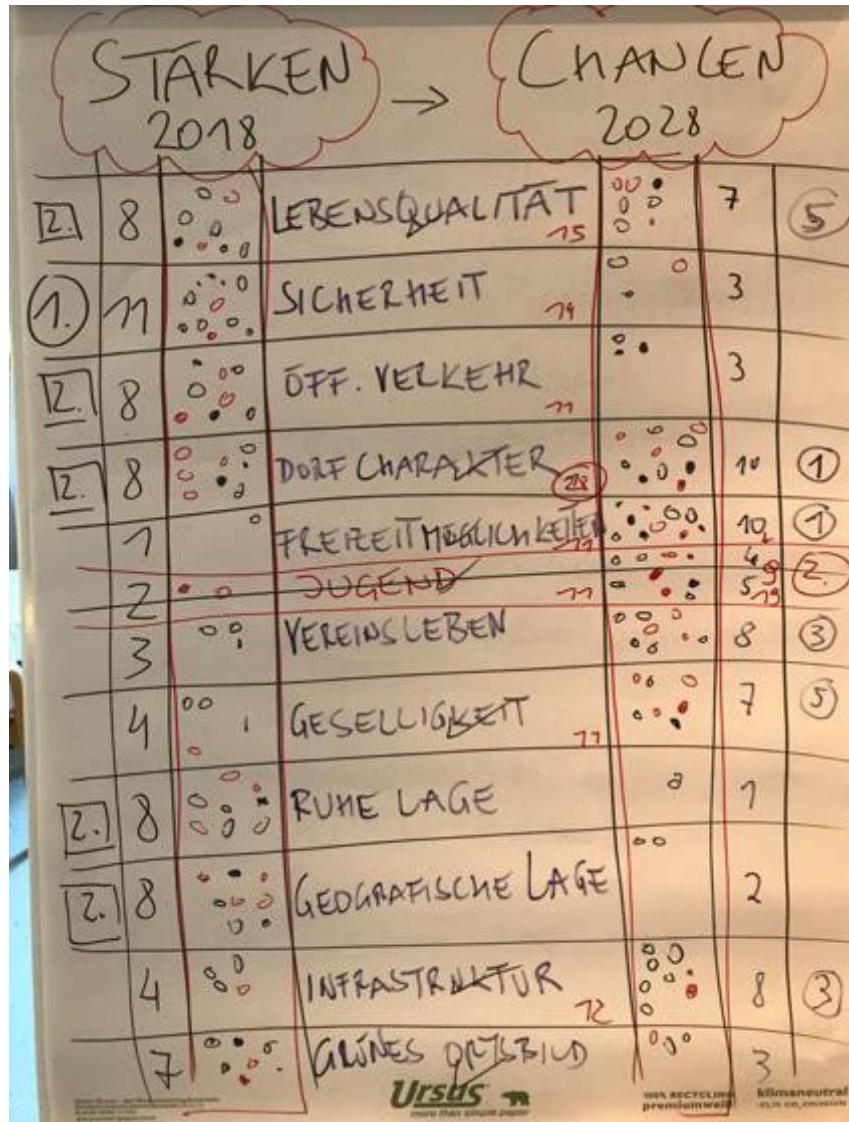 STÄRKEN → CHANCEN
2018 2028
2. 8 LEBENSQUALITÄT 15 7 5
1. 11 SICHERHEIT 14 3
2. 8 ÖFF. VERKEHR 11 3
2. 8 DORFCHARAKTER 10 1
1 FREIZEITMÖGLICHKEITEN 11 10 1
2 JUGEND 11 4 9 5 2.
3 VEREINSLEBEN 8 3
4 GESELLIGKEIT 11 7 5
2. 8 RUHE LAGE 1
2. 8 GEOGRAFISCHE LAGE 2
4 INFRASTRUKTUR 12 8 3
7 GRÜNES ORTSBILD 3
Ursus
more than simple paper
100% RECYCLING
premiumweiß
klimaneutral